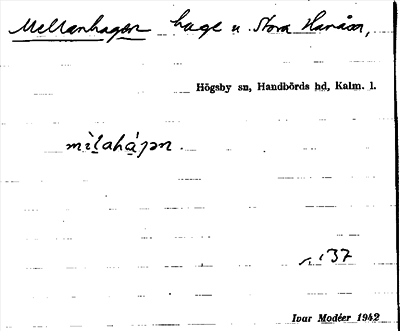 Mellanhagen hage u. Stora Hanåsa,
Högsby sn, Handbörds hd, Kalm. l.
mìlahájən.
137
Ivar Modéer 1942